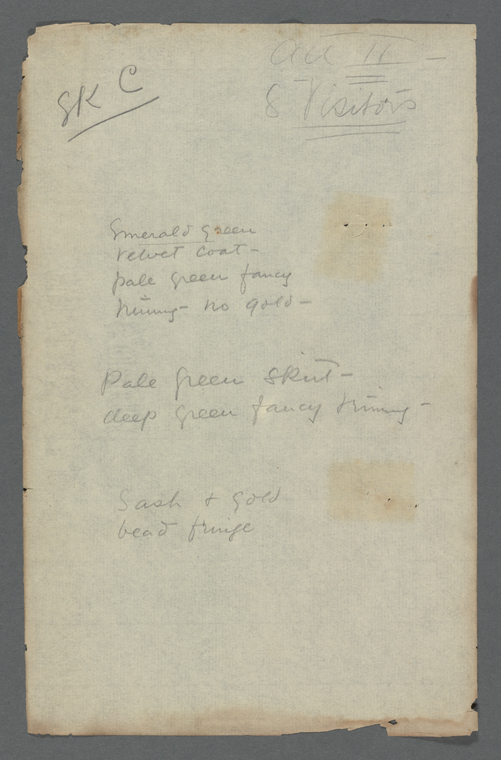 Act II -
SK C
8 Visitors
Emerald Green
velvet coat -
pale green fancy
trimng - no gold -
Pale green skirt -
deep green fancy trimng -
Sash & gold
bead fringe